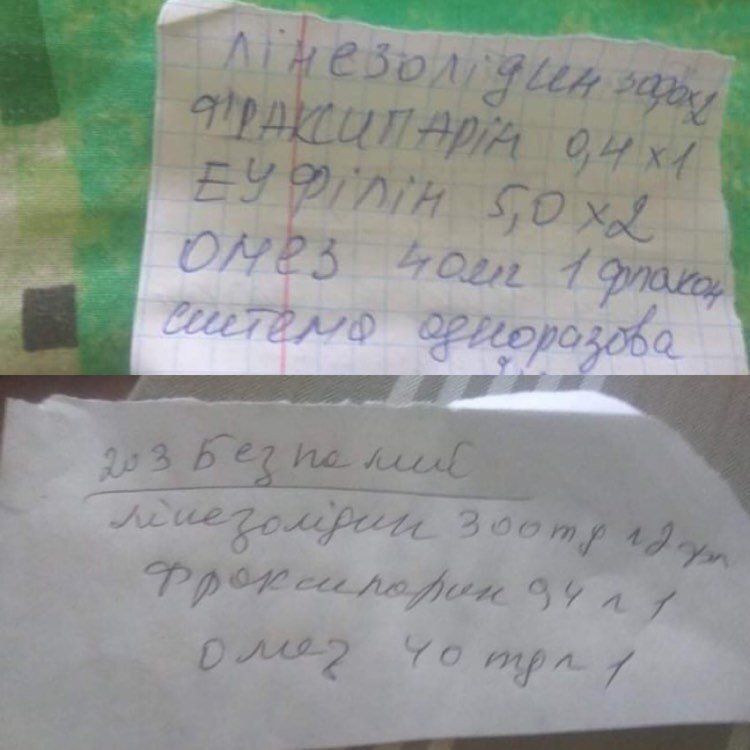 Лінезолідин 300,0х2
ФРАКСИПАРІН 0,4 х 1
ЕУФІЛІН 5,0 х 2
ОМЕЗ 40мг 1 флакон
система одноразова
203 Безпалий
Лінезолідин 300
Фраксипарин 0,4 л 1
Омез 40